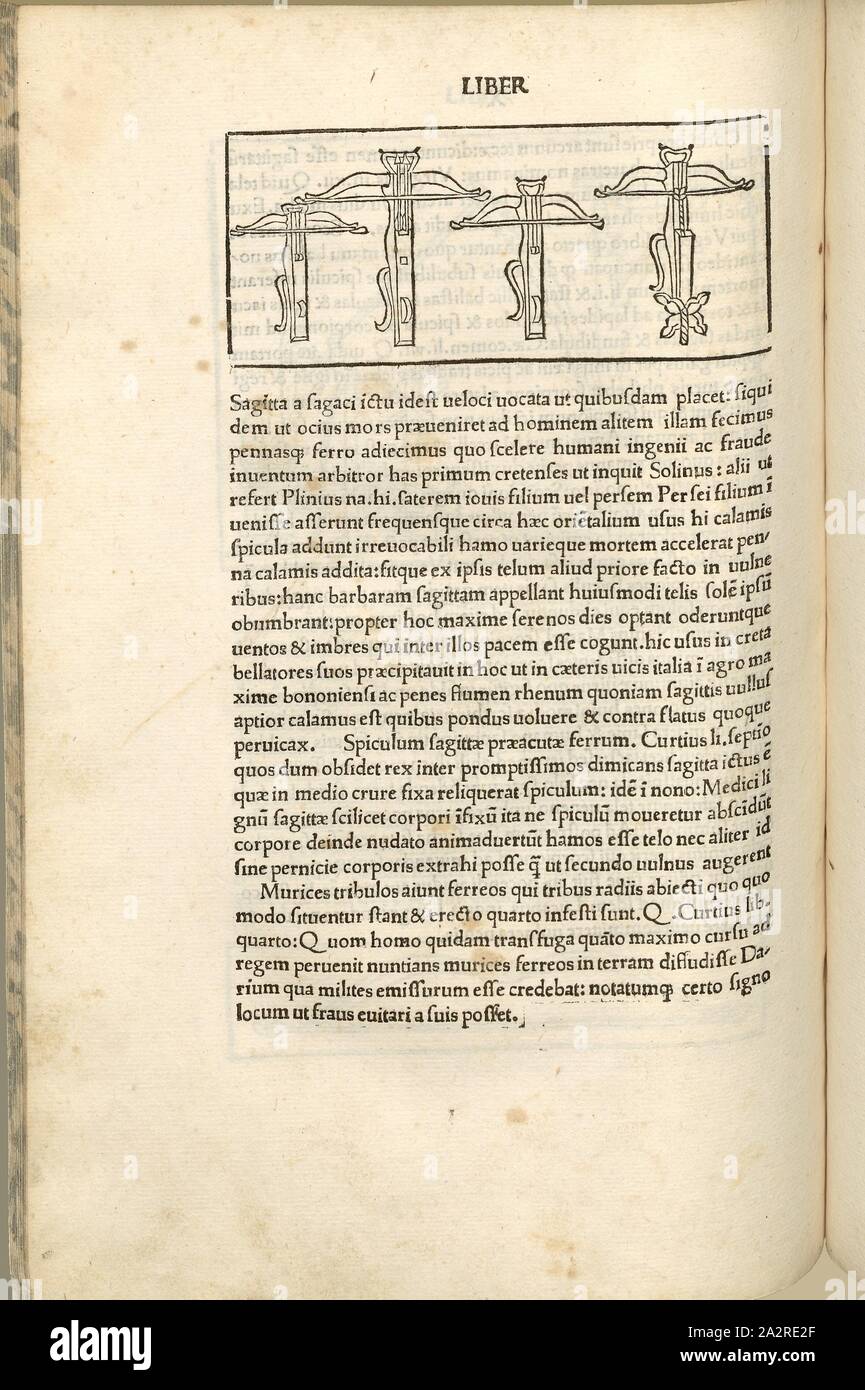 LIBER
Sagitta a ſagaci ictu ideſt ueloci uocata ut quibuſdam placet: ſiqui
dem ut ocius mors præueniret ad hominem alitem illam fecimus
pennasqȝ ferro adiecimus quo ſcelere humani ingenii ac fraude
inuentum arbitror has primum cretenſes ut inquit Solinus: alii ut
refert Plinius na.hi.ſaterem iouis filium uel perſem Perſei filium ī
ueniſſe aſſerunt frequenſque circa hæc oriētalium uſus hi calamis
ſpicula addunt irreuocabili hamo uarieque mortem accelerat pen/
na calamis addita:fitque ex ipſis telum aliud priore facto in uulne
ribus:hanc barbaram ſagittam appellant huiuſmodi telis ſolē ipſū
obumbrant:propter hoc maxime ſerenos dies optant oderuntque
uentos & imbres qui inter illos pacem eſſe cogunt.hic uſus in creta
bellatores ſuos præcipitauit in hoc ut in cæteris uicis italia ī agro ma
xime bononienſi ac penes flumen rhenum quoniam ſagittis uulluſ
aptior calamus eſt quibus pondus uoluere & contra flatus quoque
peruicax. Spiculum ſagittæ præacutæ ferrum. Curtius li.ſeptīo
quos dum obſidet rex inter promptiſſimos dimicans ſagitta ictus ē
quæ in medio crure fixa reliquerat ſpiculum: idē ī nono:Medici li
gnū ſagittæ ſcilicet corpori īfixū ita ne ſpiculū moueretur abſcīdūt
corpore deinde nudato animaduertūt hamos eſſe telo nec aliter id
ſine pernicie corporis extrahi poſſe q̄ ut ſecundo uulnus augerent
Murices tribulos aiunt ferreos qui tribus radiis abiecti quo quo
modo ſituentur ſtant & erecto quarto infeſti ſunt. Q. Curtius lib.
quarto: Quom homo quidam transfuga quāto maximo curſu ad
regem peruenit nuntians murices ferreos in terram diffudiſſe Da/
rium qua milites emiſſurum eſſe credebat: notatumqȝ certo ſigno
locum ut fraus euitari a ſuis poſſet.
alamy
Image ID: 2A2RE2F
www.alamy.com